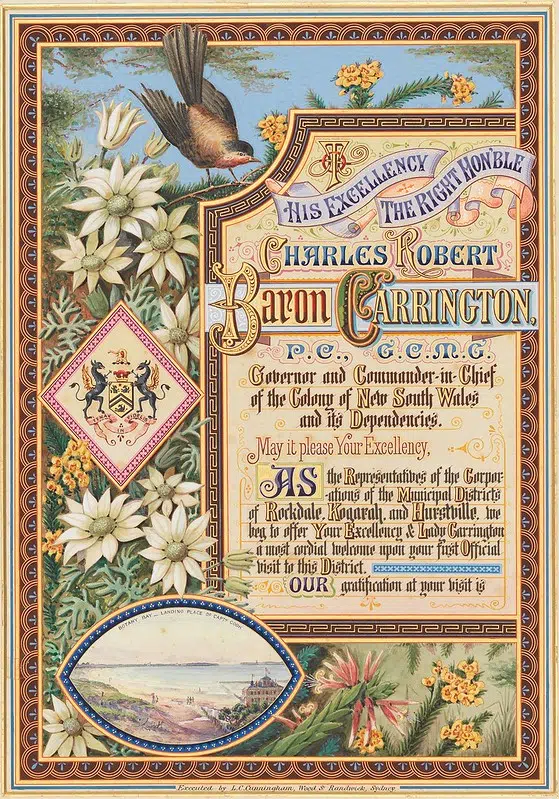 To
His Excellency
The Right Honble
Charles Robert
Baron Carrington,
P.C., G.C.M.G.
Governor and Commander-in-Chief
of the Colony of New South Wales
and its Dependencies.
May it please Your Excellency,
As the Representatives of the Corpor
-ations of the Municipal Districts
of Rockdale, Kogarah, and Hurstville, we
beg to offer Your Excellency & Lady Carrington
a most cordial welcome upon your first Official
visit to this District.
OUR gratification at your visit is
BOTANY BAY — LANDING PLACE OF CAPTN COOK
Executed by L.C. Cunningham, Wood St Randwick, Sydney.